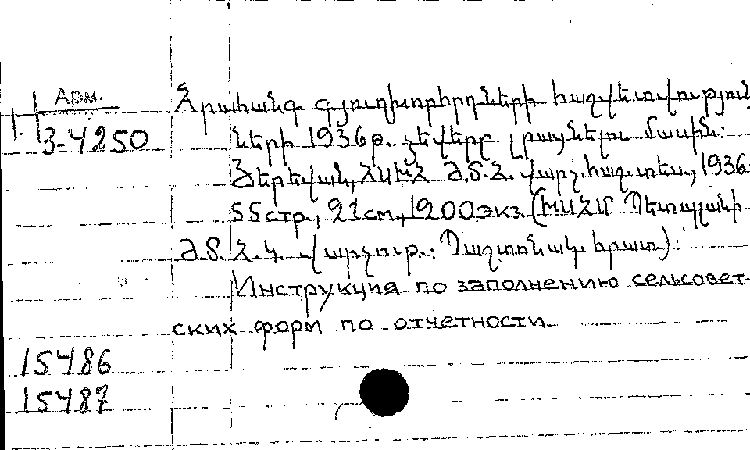 Арм.
Հրահանգ գյուղխորհրդների հաշվետվություն
3-4250
ների 1936թ. ձևերը լրացնելու մասին:
Յերեվան, ՀՍԽՀ Ժ.Տ.Հ. վարչ. հաշ. տես., 1936.
55стр., 21см., 1200экз. (ԽՍՀՄ Պետպլանի
Ժ.Տ.Հ.Կ. վարչութ.: Պաշտոնակ. հրատ):
Инструкция по заполнению сельсовет-
ских форм по отчетности.
15486
15487